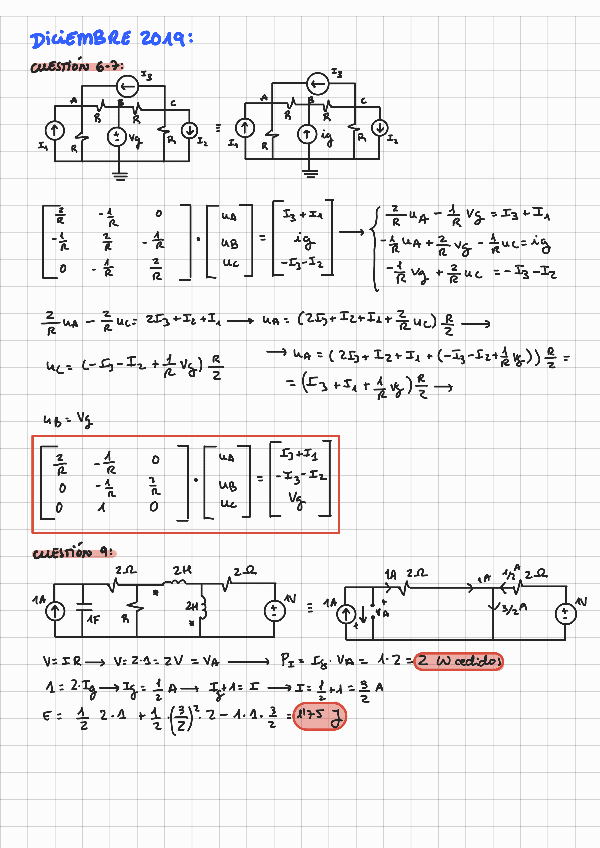 DICIEMBRE 2019:
CUESTIÓN 6-7:
I3 I3
A B C A B C
R R R R
I1 R Vg R I2 ≡ I1 R ig R I2
[ 2/R -1/R 0 ; -1/R 2/R -1/R ; 0 -1/R 2/R ] · [ uA ; uB ; uC ] = [ I3+I1 ; ig ; -I3-I2 ] → { 2/R uA - 1/R Vg = I3+I1
-1/R uA + 2/R Vg - 1/R uC = ig
-1/R Vg + 2/R uC = -I3-I2
2/R uA - 2/R uC = 2I3+I2+I1 → uA = (2I3+I2+I1+2/R uC) R/2 →
uC = (-I3-I2+1/R Vg) R/2 → uA = (2I3+I2+I1+(-I3-I2+1/R Vg)) R/2 =
= (I3+I1+1/R Vg) R/2 →
uB = Vg
[ 2/R -1/R 0 ; 0 -1/R 2/R ; 0 1 0 ] · [ uA ; uB ; uC ] = [ I3+I1 ; -I3-I2 ; Vg ]
CUESTIÓN 9:
2Ω 2H 2Ω 1A 2Ω 1A 1/2A 2Ω
1A 1F R * 2H * 1V ≡ 1A + VA 3/2A 1V
V=IR → V=2·1=2V=VA → PI=Ig·VA=1·2= 2 W cedidos
1=2·Ig → Ig=1/2 A → Ig+1=I → I=1/2+1=3/2 A
E= 1/2 2·1 + 1/2·(3/2)²·2 - 1·1·3/2 = 1'75 J